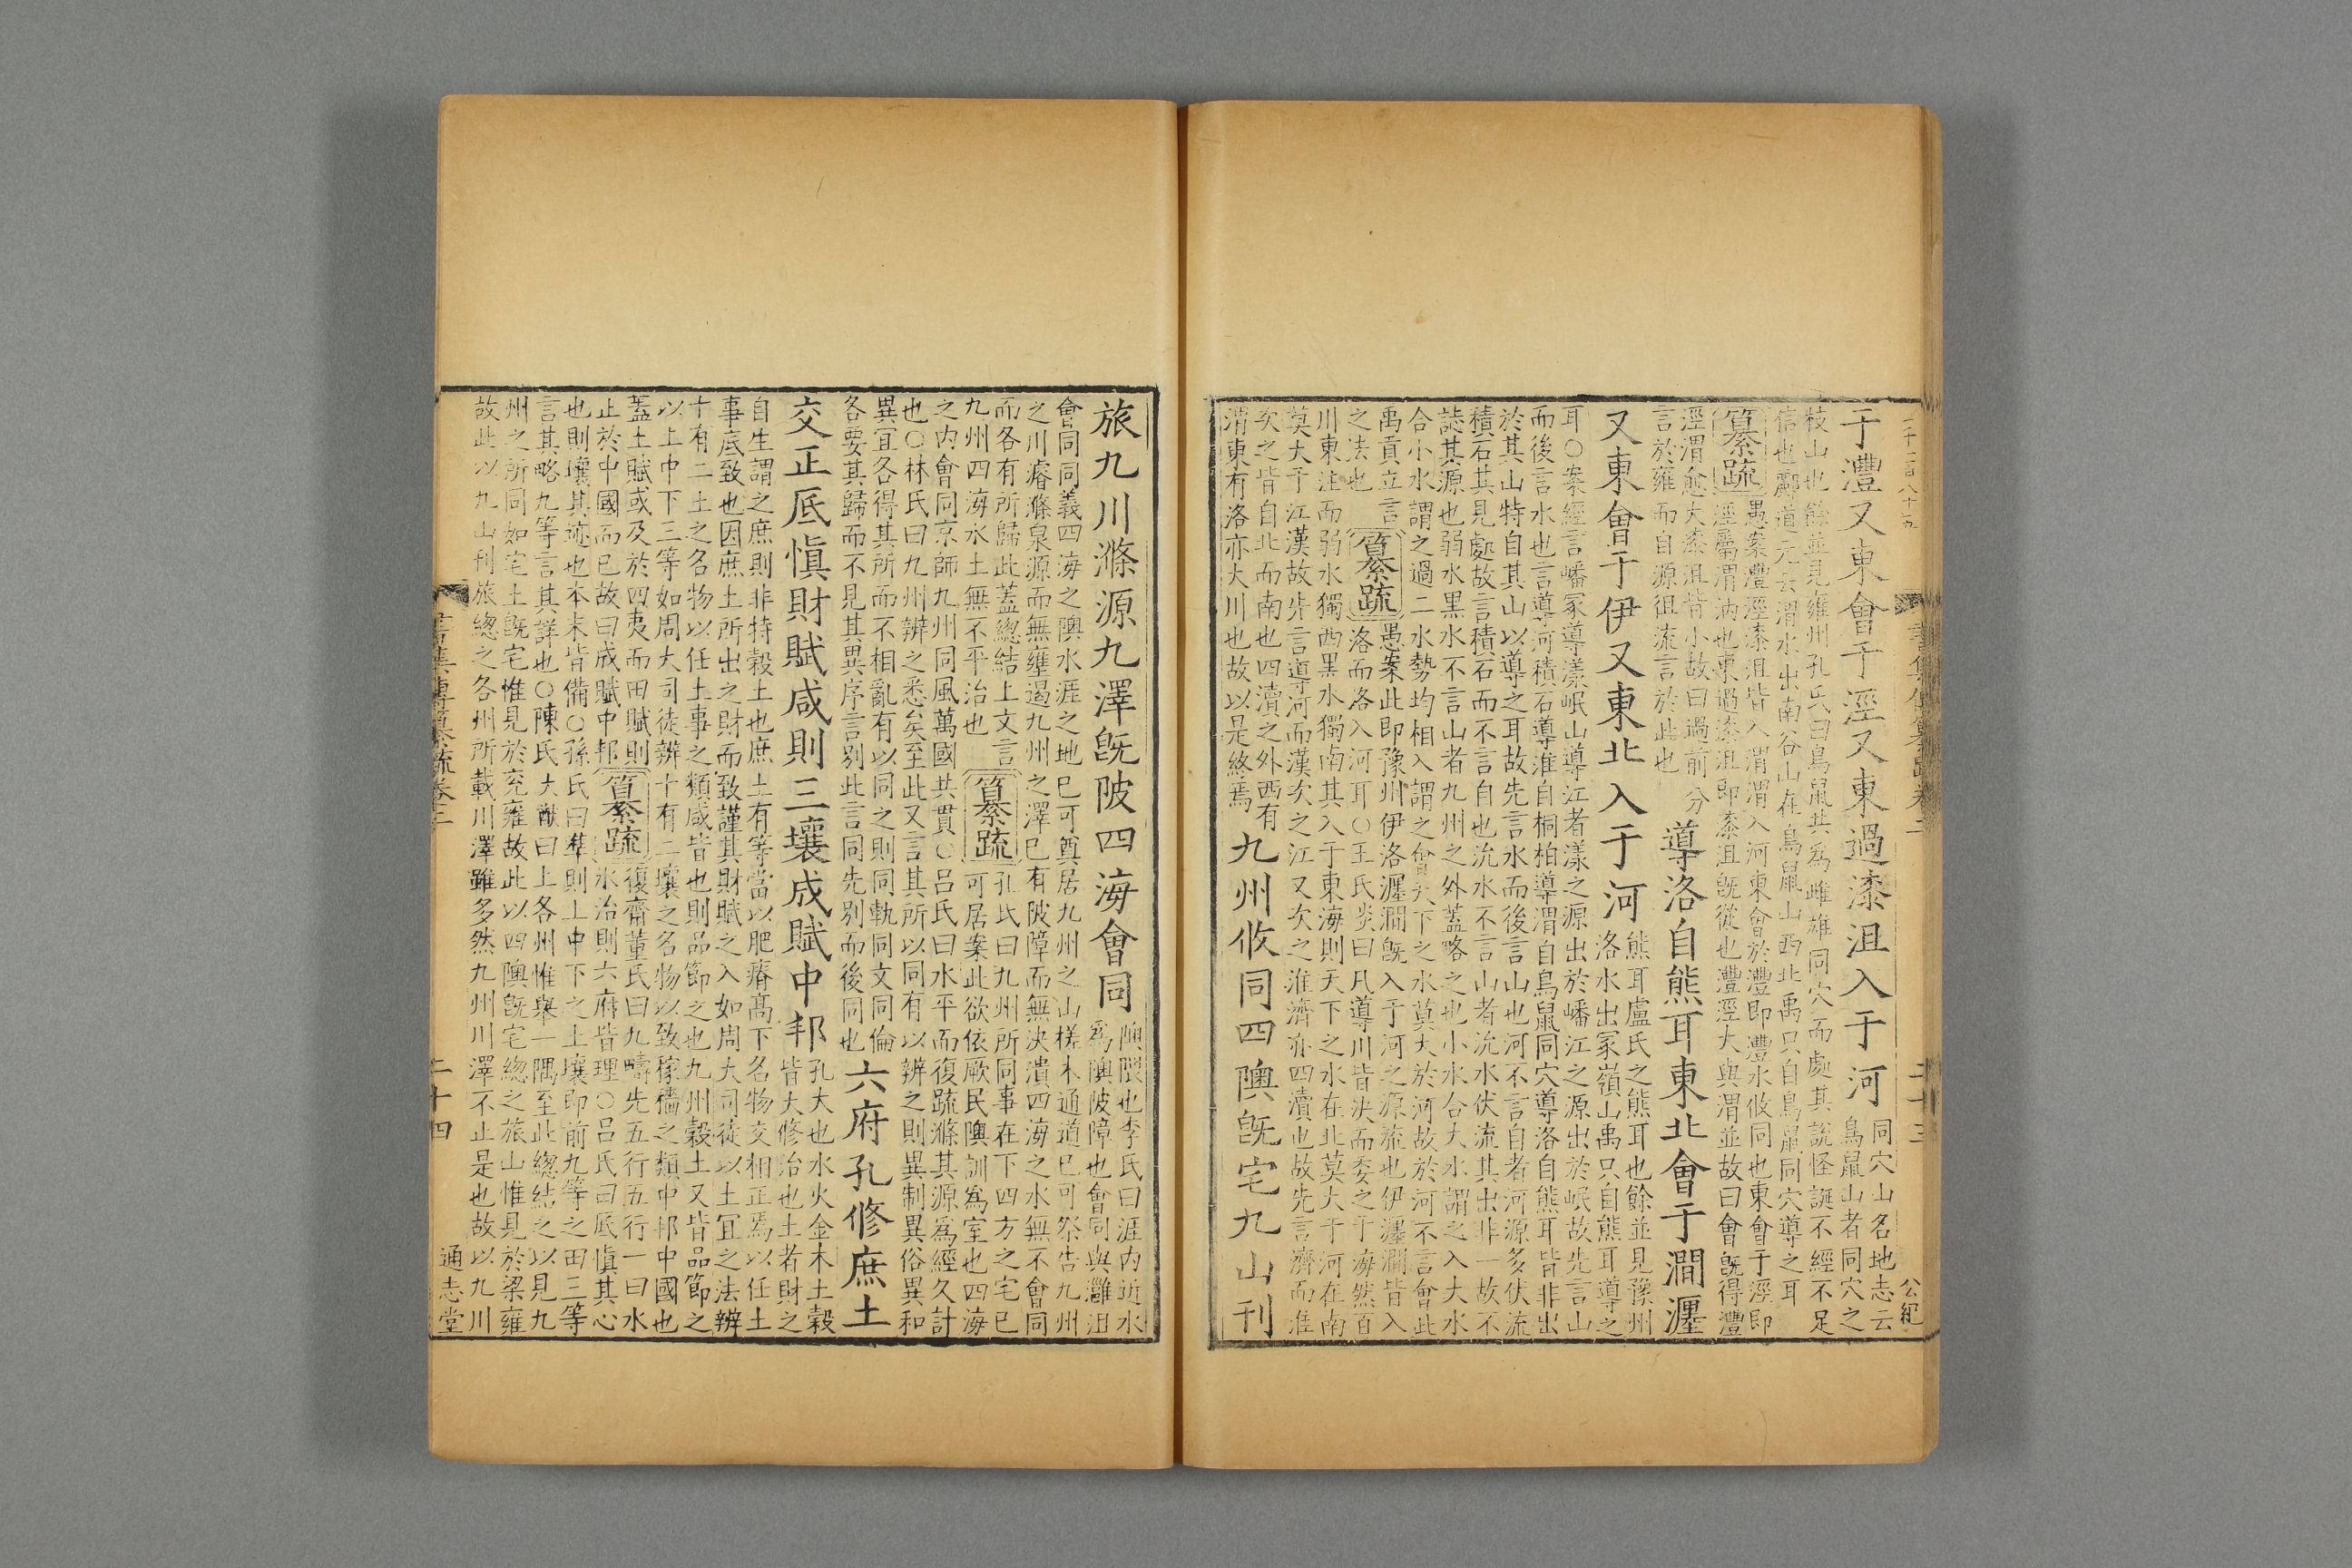 于灃又東會于涇又東過漆沮入于河
同穴山名地志云
鳥鼠山者同穴之
枝山也餘並見雍州孔氏曰鳥鼠共爲雌雄同穴而處其說怪誕不經不足
信也酈道元云渭水出南谷山在鳥鼠山西北禹只自鳥鼠同穴導之耳
纂疏
愚案灃涇漆沮皆入渭渭入河東會於灃即灃水攸同也東會于涇即
涇屬渭汭也東過漆沮即漆沮旣從也灃涇大與渭並故曰會旣得灃
涇渭愈大漆沮皆小故曰過前分
言於雍而自源徂流言於此也
導洛自熊耳東北會于澗瀍
又東會于伊又東北入于河
熊耳盧氏之熊耳也餘並見豫州
洛水出冢嶺山禹只自熊耳導之
耳○案經言嶓冢導漾岷山導江者漾之源出於嶓江之源出於岷故先言山
而後言水也言導河積石導淮自桐柏導渭自鳥鼠同穴導洛自熊耳皆非出
於其山特自其山以導之耳故先言水而後言山也河不言自者河源多伏流
積石其見處故言積石而不言自也沇水不言山者沇水伏流其出非一故不
誌其源也弱水黑水不言山者九州之外蓋略之也小水合大水謂之入大水
合小水謂之過二水勢均相入謂之會天下之水莫大於河故於河不言會此
禹貢立言
之法也
纂疏
愚案此即豫州伊洛瀍澗旣入于河之源流也伊瀍澗皆入
洛而洛入河耳○王氏炎曰凡導川皆決而委之于海然百
川東注而弱水獨西黑水獨南其入于東海則天下之水在北莫大于河在南
莫大于江漢故先言導河而漢次之江又次之淮濟亦四瀆也故先言濟而淮
次之皆自北而南也四瀆之外西有
渭東有洛亦大川也故以是終焉
九州攸同四隩旣宅九山刊
旅九川滌源九澤旣陂四海會同
隩隈也李氏曰涯内近水
爲隩陂障也會同與灉沮
會同同義四海之隩水涯之地已可奠居九州之山槎木通道已可祭告九州
之川濬滌泉源而無壅遏九州之澤已有陂障而無決潰四海之水無不會同
而各有所歸此蓋總結上文言
九州四海水土無不平治也
纂疏
孔氏曰九州所同事在下四方之宅已
可居案此欲依厥民隩訓爲室也四海
之内會同京師九州同風萬國共貫○呂氏曰水平而復疏滌其源爲經久計
也○林氏曰九州辨之悉矣至此又言其所以同有以辨之則異制異俗異和
異宜各得其所而不相亂有以同之則同軌同文同倫
各要其歸而不見其異序言別此言同先別而後同也
六府孔修庶土
交正厎愼財賦咸則三壤成賦中邦
孔大也水火金木土穀
皆大修治也土者財之
自生謂之庶則非特穀土也庶土有等當以肥瘠髙下名物交相正焉以任土
事底致也因庶土所出之財而致謹其財賦之入如周大司徒以土宜之法辨
十有二土之名物以任土事之類咸皆也則品節之也九州穀土又皆品節之
以上中下三等如周大司徒辨十有二壤之名物以致稼穡之類中邦中國也
蓋土賦或及於四夷而田賦則
止於中國而已故曰成賦中邦
纂疏
復齋董氏曰九疇先五行五行一曰水
水治則六府皆理○呂氏曰厎愼其心
也則壤其迹也本末皆備○孫氏曰凖則上中下之土壤即前九等之田三等
言其略九等言其詳也○陳氏大猷曰上各州惟舉一隅至此緫結之以見九
州之所同如宅土旣宅惟見於兖雍故此以四隩旣宅緫之旅山惟見於梁雍
故此以九山刊旅緫之各州所載川澤雖多然九州川澤不止是也故以九川
二十四
通志堂